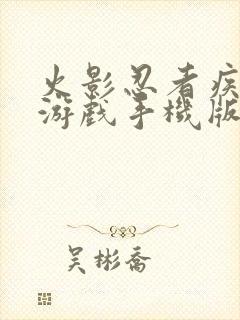 火影忍者疾
游戏手機版
吴彬喬